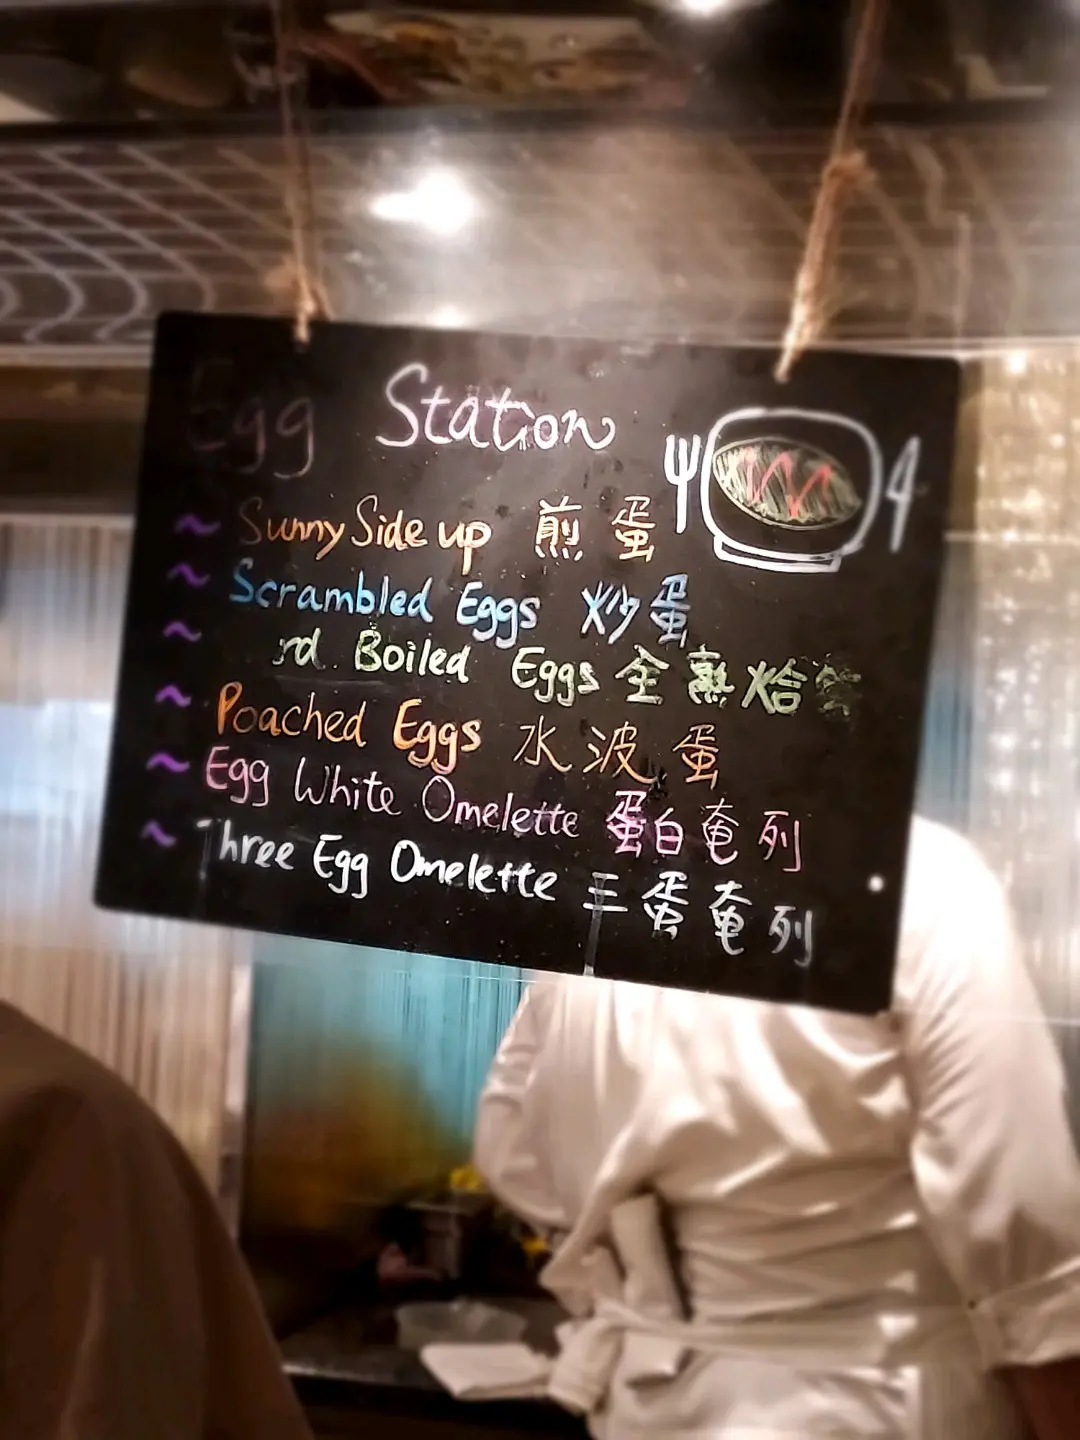 Egg Station
~ Sunny Side up 煎蛋
~ Scrambled Eggs 炒蛋
~ rd Boiled Eggs 全熟烚
~ Poached Eggs 水波蛋
~ Egg White Omelette 蛋白奄列
~ Three Egg Omelette 三蛋奄列